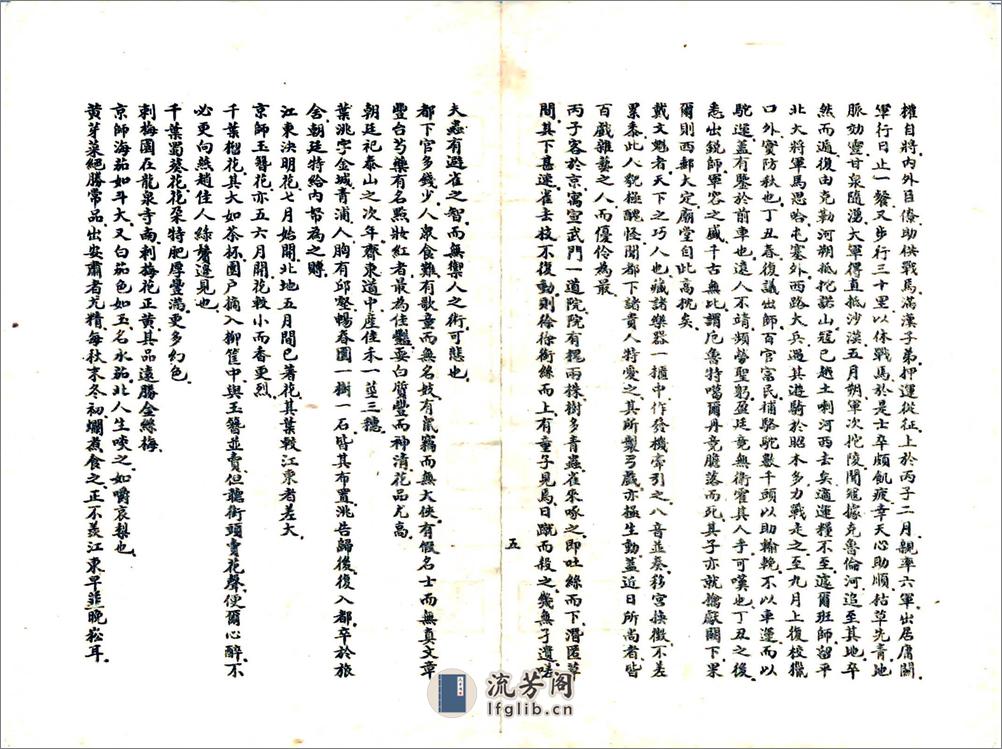 權自將內外臣僚助供戰馬滿漢子弟押運從征上於丙子二月親率六軍出居庸關
軍行日止一餐又步行三十里以休戰馬於是士卒頗飢疲幸天心助順枯草先青地
脈効靈甘泉隨湧大軍得直抵沙漠五月朔軍次挖陵聞寇據克魯倫河追至其地卒
然而遁復由克勒河朔抵挖諾山寇已越土喇河西去矣適運糧不至遽爾班師留平
北大將軍馬思哈屯塞外西路大兵遇其遊騎於昭木多力戰走之至九月上復校獵
口外實防秋也丁丑春復議出師百官富民捕駱駝數千頭以助輸輓不以車運而以
駝運蓋有鑒於前車也遠人不靖頻勞聖躬盈廷竟無衛霍其人乎可嘆也丁丑之後
悉出銳師軍容之盛千古無比謂厄魯特噶爾丹竟膽落而死其子亦就擒獻闕下果
爾則西鄙大定廟堂自此高枕矣
戴文魁者天下之巧人也藏諸樂器一櫃中作發機牽引之八音並奏移宮換徵不差
累黍此人貌極醜怪聞都下諸貴人特愛之其所製弓戲亦極生動蓋近日所尚者皆
百戲雜藝之人而優伶為最
丙子客於京寓宣武門一道院院有槐兩株樹多青蟲雀來啄之即吐絲而下潛匿草
間其下甚速雀去技不復動則徐徐銜絲而上有童子見焉日蹴而殺之幾無孑遺嗟
五
夫蟲有避雀之智而無禦人之術可悲也
都下官多錢少人衆食難有歌童而無名妓有鼠竊而無大俠有假名士而無真文章
豐台芍藥有名點妝紅者最為佳豔蚕白質豐而神清花品尤高
朝廷祀泰山之次年齊東道中産佳禾一莖三穗
葉洮字金城青浦人胸有邱壑暢春園一樹一石皆其布置洮告歸後復入都卒於旅
舍朝廷特給內帑為之賻
江東決明花七月始開北地五月間已著花其葉較江東者差大
京師玉簪花亦五六月開花較小而香更烈
千葉榴花其大如茶杯園户摘入柳筐中與玉簪並賣但聽街頭賣花聲便爾心醉不
必更向燕趙佳人綠鬢邊見也
千葉蜀葵花花朶特肥厚豐滿更多幻色
刺梅園在龍泉寺南刺梅花正黃其品遠勝金絲梅
京師海茄如斗大又白茄色如玉名水茄北人生啖之如嚼哀梨也
黃芽菜絕勝常品出安肅者尤精每秋末冬初爛煮食之正不羨江東早韮晚菘耳
流芳閣
lfglib.cn